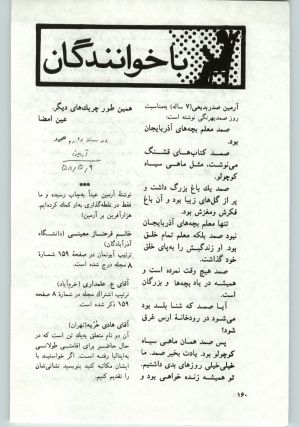 با خوانندگان
آرمین صدربدیعی (۷ ساله) به‌مناسبت
روز صمد بهرنگی نوشته است:
صمد معلم بچه‌های آذربایجان
بود.
صمد کتاب‌های قشنگ
می‌نوشت، مثل ماهی سیاه
کوچولو.
صمد یك باغ بزرگ داشت و
پر از گل‌های زیبا بود و آن باغ
فکرش و مغزش بود.
تنها معلم بچه‌های آذربایجان
نبود صمد بلکه معلم تمام خلق
بود. او زندگیش را به‌پای خلق
خود گذاشت.
صمد هیچ وقت نمرده است و
همیشه در یاد بچه‌ها و بزرگان
است.
آیا صمد که شنا بلد بود
می‌شود در رودخانهٔ ارس غرق
شود!
پس صمد همان ماهی سیاه
کوچولو بود. یادت بخیر صمد. ما
خیلی‌خیلی روزهای بدی داشتیم.
تو همیشه زنده خواهی بود و
همین طور چریك‌های دیگر.
عین امضا
آرمین
***
نوشتهٔ آرمین عیناً به‌چاپ رسیده و ما
فقط در نقطه‌گذاری به‌او کمك کرده‌ایم.
هزارآفرین بر آرمین!
خانم فرحناز معینی (دانشگاه
آذرآبادگان)
ترتیب آبونمان در صفحهٔ ۱۵۹ شمارهٔ
۸ مجله درج شده است.
آقای ع. علمداری (خرم‌آباد)
ترتیب اشتراك مجله در شمارهٔ ۸ صفحه
۱۵۹ ذکر شده است.
آقای هادی خزیه (تهران)
آن دو نام متعلق به‌یك تن است که در
حال حاضر برای اقامتی طولانی
به‌ایتالیا رفته است. اگر خواستید با
ایشان مکاتبه کنید بنویسید نشانی‌شان
را تقدیم کنیم.
۱۶۰